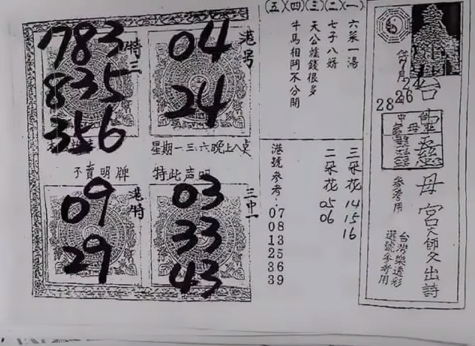 慈母宮天師文出詩
台灣樂透彩
選號參考用
參考用
28
26
(一)六菜一湯
(二)七子八婿
(三)天公錢很多
(四)千馬相鬥不分開
(五)
三朵花 14 15 16
二朵花 05 06
港號參考：07 08 13 25 36 39
特三
783
835
356
港号
04
24
星期一三六晚上八
不賣明牌
特此声明
港特
09
29
三中一
03
33
43